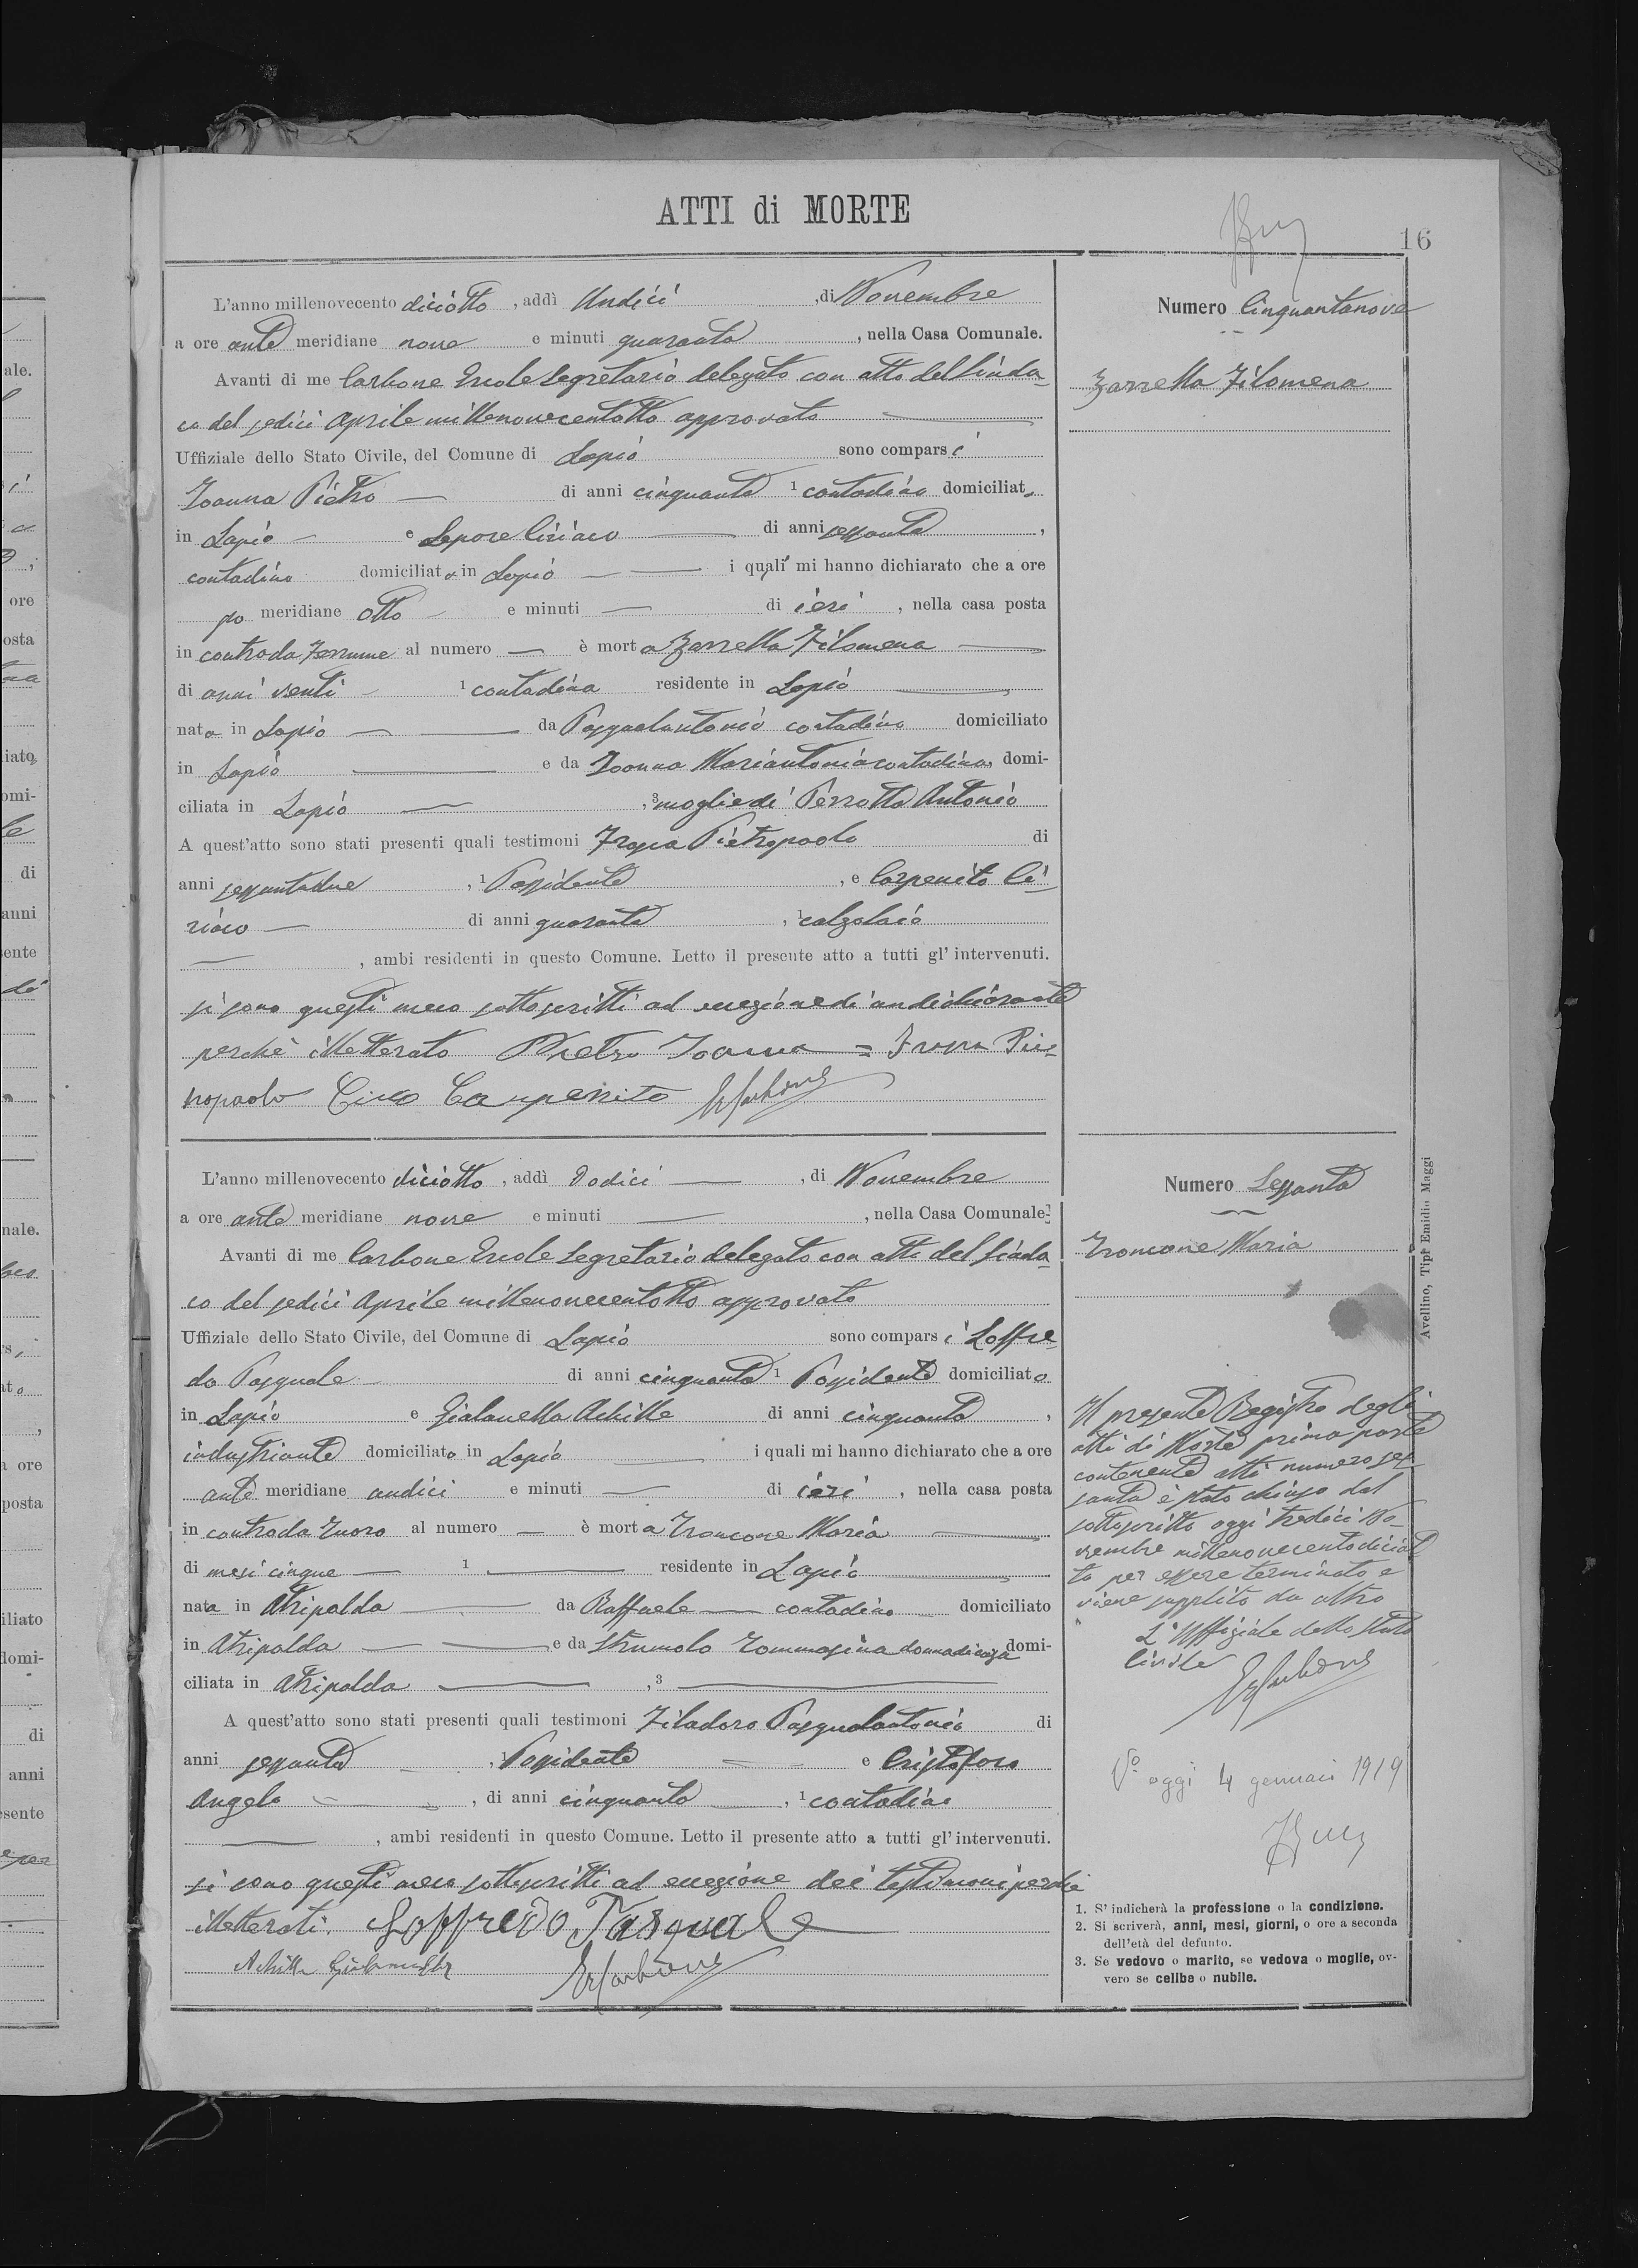 ATTI di MORTE
16
L'anno millenovecento diciotto, addì Undici, di Novembre
a ore ante meridiane nove e minuti quaranta, nella Casa Comunale.
Avanti di me Carbone Ercole Segretario delegato con atto del Sinda-
co del sedici Aprile millenovecentotto approvato
Uffiziale dello Stato Civile, del Comune di Lapio sono comparsi
Ioanna Pietro di anni cinquanta 1 contadino domiciliato
in Lapio e Lepore Ciriaco di anni sessanta,
contadino domiciliato in Lapio i quali mi hanno dichiarato che a ore
po meridiane otto e minuti — di ieri, nella casa posta
in contrada al numero — è morta Zarrella Filomena
di anni venti 1 contadina residente in Lapio
nata in Lapio da Pasqualantonio contadino domiciliato
in Lapio e da Ioanna Mariantonia contadina domi-
ciliata in Lapio, 3 moglie di Perrotta Antonio
A quest'atto sono stati presenti quali testimoni Pietropaolo di
anni sessantadue, 1 Possidente, e Carpenito Ci-
riaco di anni quaranta, 1 calzolaio
—, ambi residenti in questo Comune. Letto il presente atto a tutti gl'intervenuti.
si sono questi meco sottoscritti ad eccezione di un dichiarante
perché illetterato Pietro Ioanna = Pie-
tropaolo Ciriaco Carpenito ErCarbone
Numero Cinquantanove
Zarrella Filomena
L'anno millenovecento diciotto, addì Dodici, di Novembre
a ore ante meridiane nove e minuti —, nella Casa Comunale.
Avanti di me Carbone Ercole Segretario delegato con atto del Sinda-
co del sedici Aprile millenovecentotto approvato
Uffiziale dello Stato Civile, del Comune di Lapio sono comparsi Loffre-
do Pasquale di anni cinquanta 1 Possidente domiciliato
in Lapio e Gialanella Achille di anni cinquanta,
industriante domiciliato in Lapio i quali mi hanno dichiarato che a ore
ante meridiane undici e minuti — di ieri, nella casa posta
in contrada al numero — è morta Troncone Maria
di mesi cinque 1 — residente in Lapio
nata in Atripalda da Raffaele — contadino domiciliato
in Atripalda e da Strumolo Tommasina donna di casa domi-
ciliata in Atripalda, 3 —
A quest'atto sono stati presenti quali testimoni Filadoro Pasqualantonio di
anni sessanta, 1 Possidente e Cristoforo
Angelo, di anni cinquanta, 1 contadino
—, ambi residenti in questo Comune. Letto il presente atto a tutti gl'intervenuti.
si sono questi meco sottoscritti ad eccezione dei testimoni perché
illetterati. Loffredo Pasquale
Achille Gialanella ErCarbone
Numero Sessanta
Troncone Maria
Il presente Registro degli
atti di Morte prima parte
contenente atti numero ses-
santa è stato chiuso dal
sottoscritto oggi tredici No-
vembre millenovecentodiciot
to per essere terminato e
viene supplito da altro
L'Uffiziale dello Stato
Civile
ErCarbone
Vo oggi 4 gennaio 1919
1. S'indicherà la professione o la condizione.
2. Si scriverà, anni, mesi, giorni, o ore a seconda
dell'età del defunto.
3. Se vedovo o marito, se vedova o moglie, ov-
vero se celibe o nubile.
Avellino, Tip. Emidio Maggi
ale.
ore
osta
iato
omi-
di
anni
ente
nale.
a ore
posta
iliato
domi-
di
anni
sente